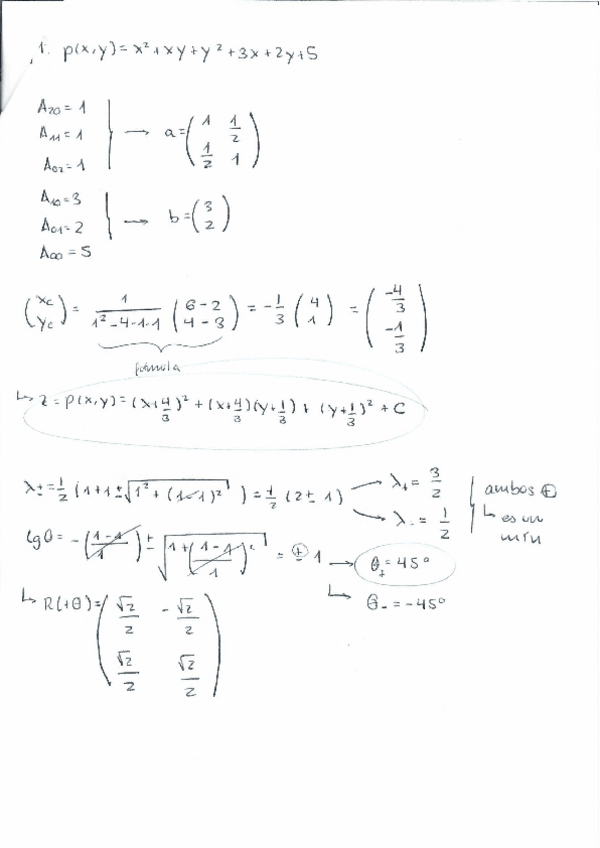 1. p(x,y) = x² + xy + y² + 3x + 2y + 5
A₂₀ = 1
A₁₁ = 1 → a = (1 1/2; 1/2 1)
A₀₂ = 1
A₁₀ = 3
A₀₁ = 2 → b = (3; 2)
A₀₀ = 5
(xc; yc) = 1/(1² - 4·1·1) (6 - 2; 4 - 3) = -1/3 (4; 1) = (-4/3; -1/3)
fórmula
↳ z = p(x,y) = (x + 4/3)² + (x + 4/3)(y + 1/3) + (y + 1/3)² + C
λ± = 1/2 (1 + 1 ± √(1² + (1-1)²)) = 1/2 (2 ± 1) → λ₊ = 3/2 ambos ⊕
→ λ₋ = 1/2 ↳ es un min
tgθ = -((1-1)/1) ± √(1 + ((1-1)/1)²) = ± 1 → θ₊ = 45°
↳ θ₋ = -45°
↳ R(+θ) = (√2/2 -√2/2; √2/2 √2/2)